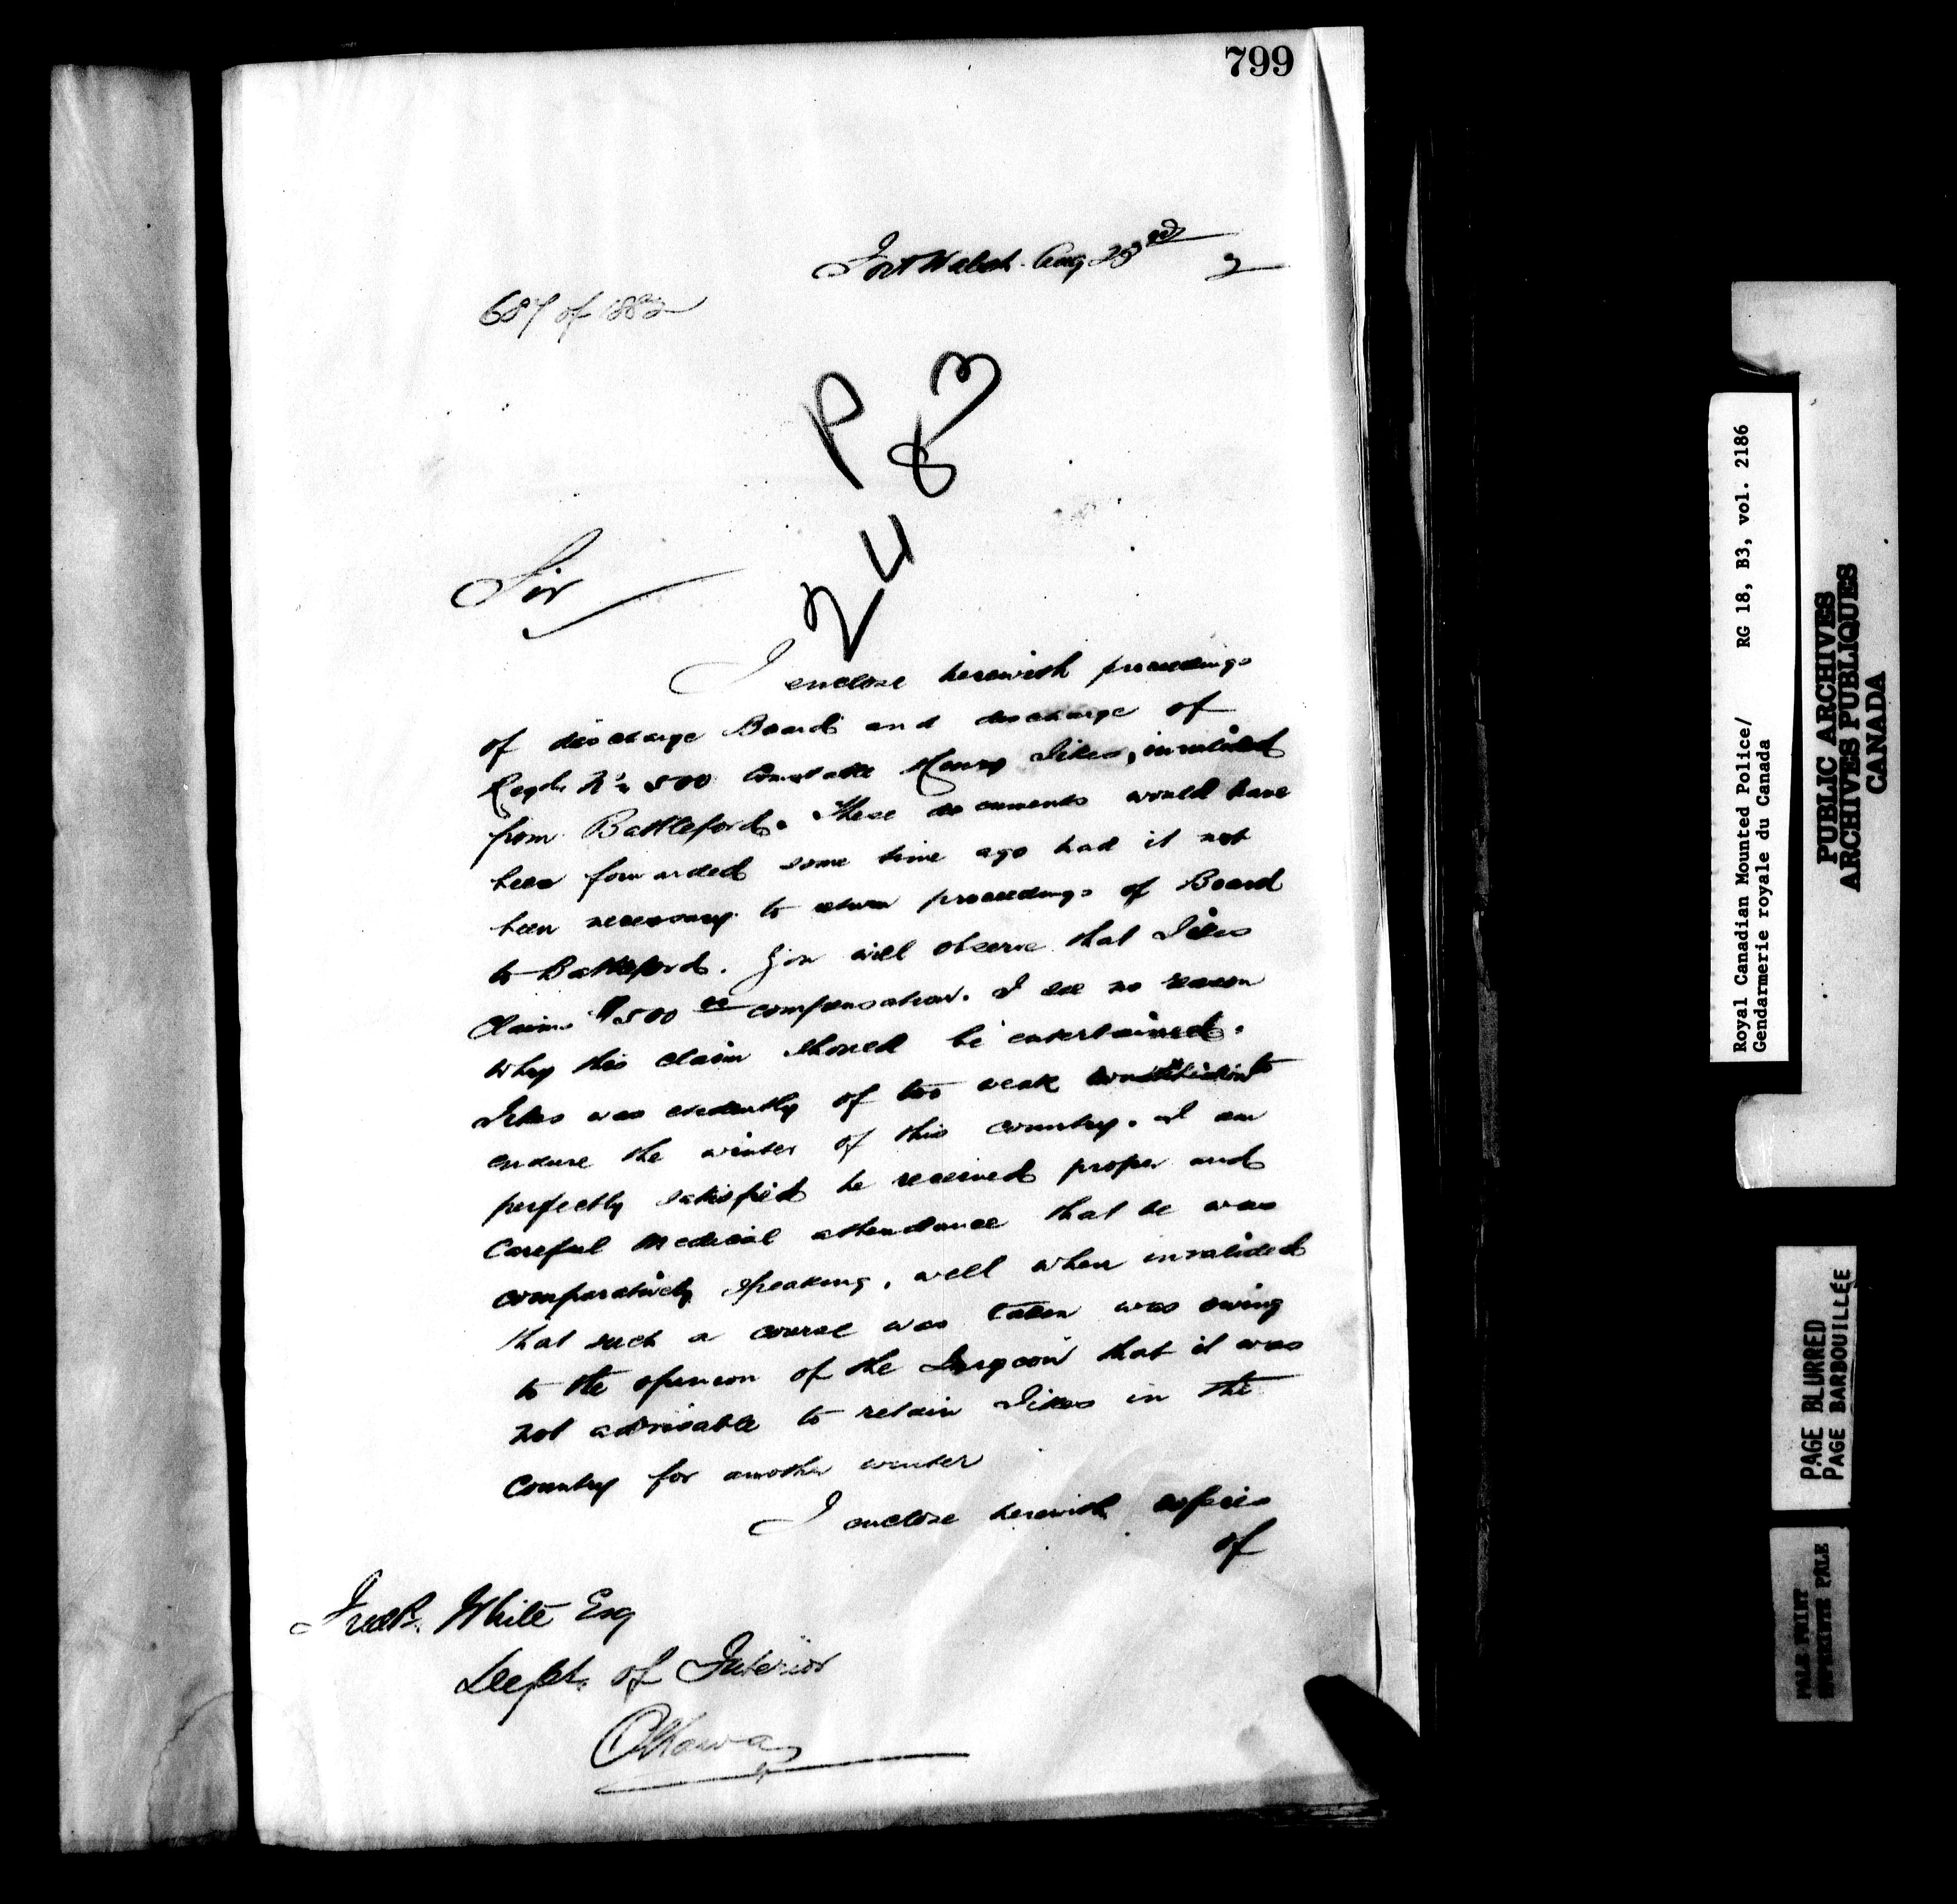 799
Fort Walsh. Aug 23rd 2
687 of 1882
P 83
24
Sir
I enclose herewith proceedings
of discharge Board and discharge of
Regtl. No 500 Constable Henry Sikes, invalided
from Battleford. These documents would have
been forwarded some time ago had it not
been necessary to return proceedings of Board
to Battleford. You will observe that Sikes
Claims $500 00 compensation. I see no reason
why this claim should be entertained.
Sikes was evidently of too weak constitution to
endure the winter of this country. I am
perfectly satisfied he received proper and
Careful Medical attendance that he was
comparatively speaking, well when invalided
that such a course was taken was owing
to the opinion of the Surgeon that it was
not advisable to retain Sikes in the
Country for another winter
I enclose herewith copies
of
Fred. White Esq
Dept. of Interior
Ottawa
Royal Canadian Mounted Police/ RG 18, B3, vol. 2186
Gendarmerie royale du Canada
PUBLIC ARCHIVES
ARCHIVES PUBLIQUES
CANADA
PAGE BLURRED
PAGE BARBOUILLÉE
PALE PRINT
EMPREINTE PALE